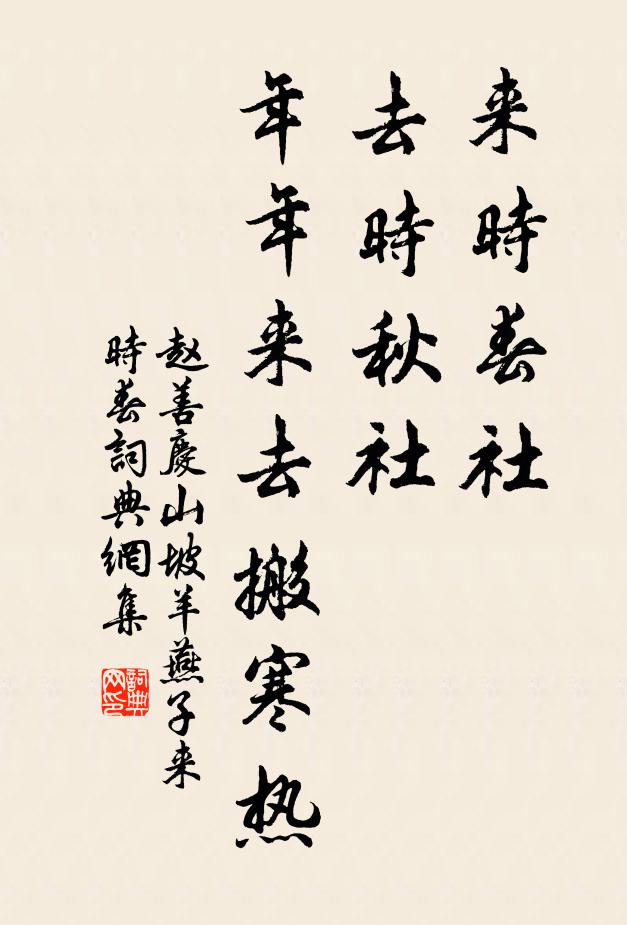 来時春社
去時秋社
年年来去搬寒热
赵善慶山坡羊燕子来
時春詞典網集
詞典网印